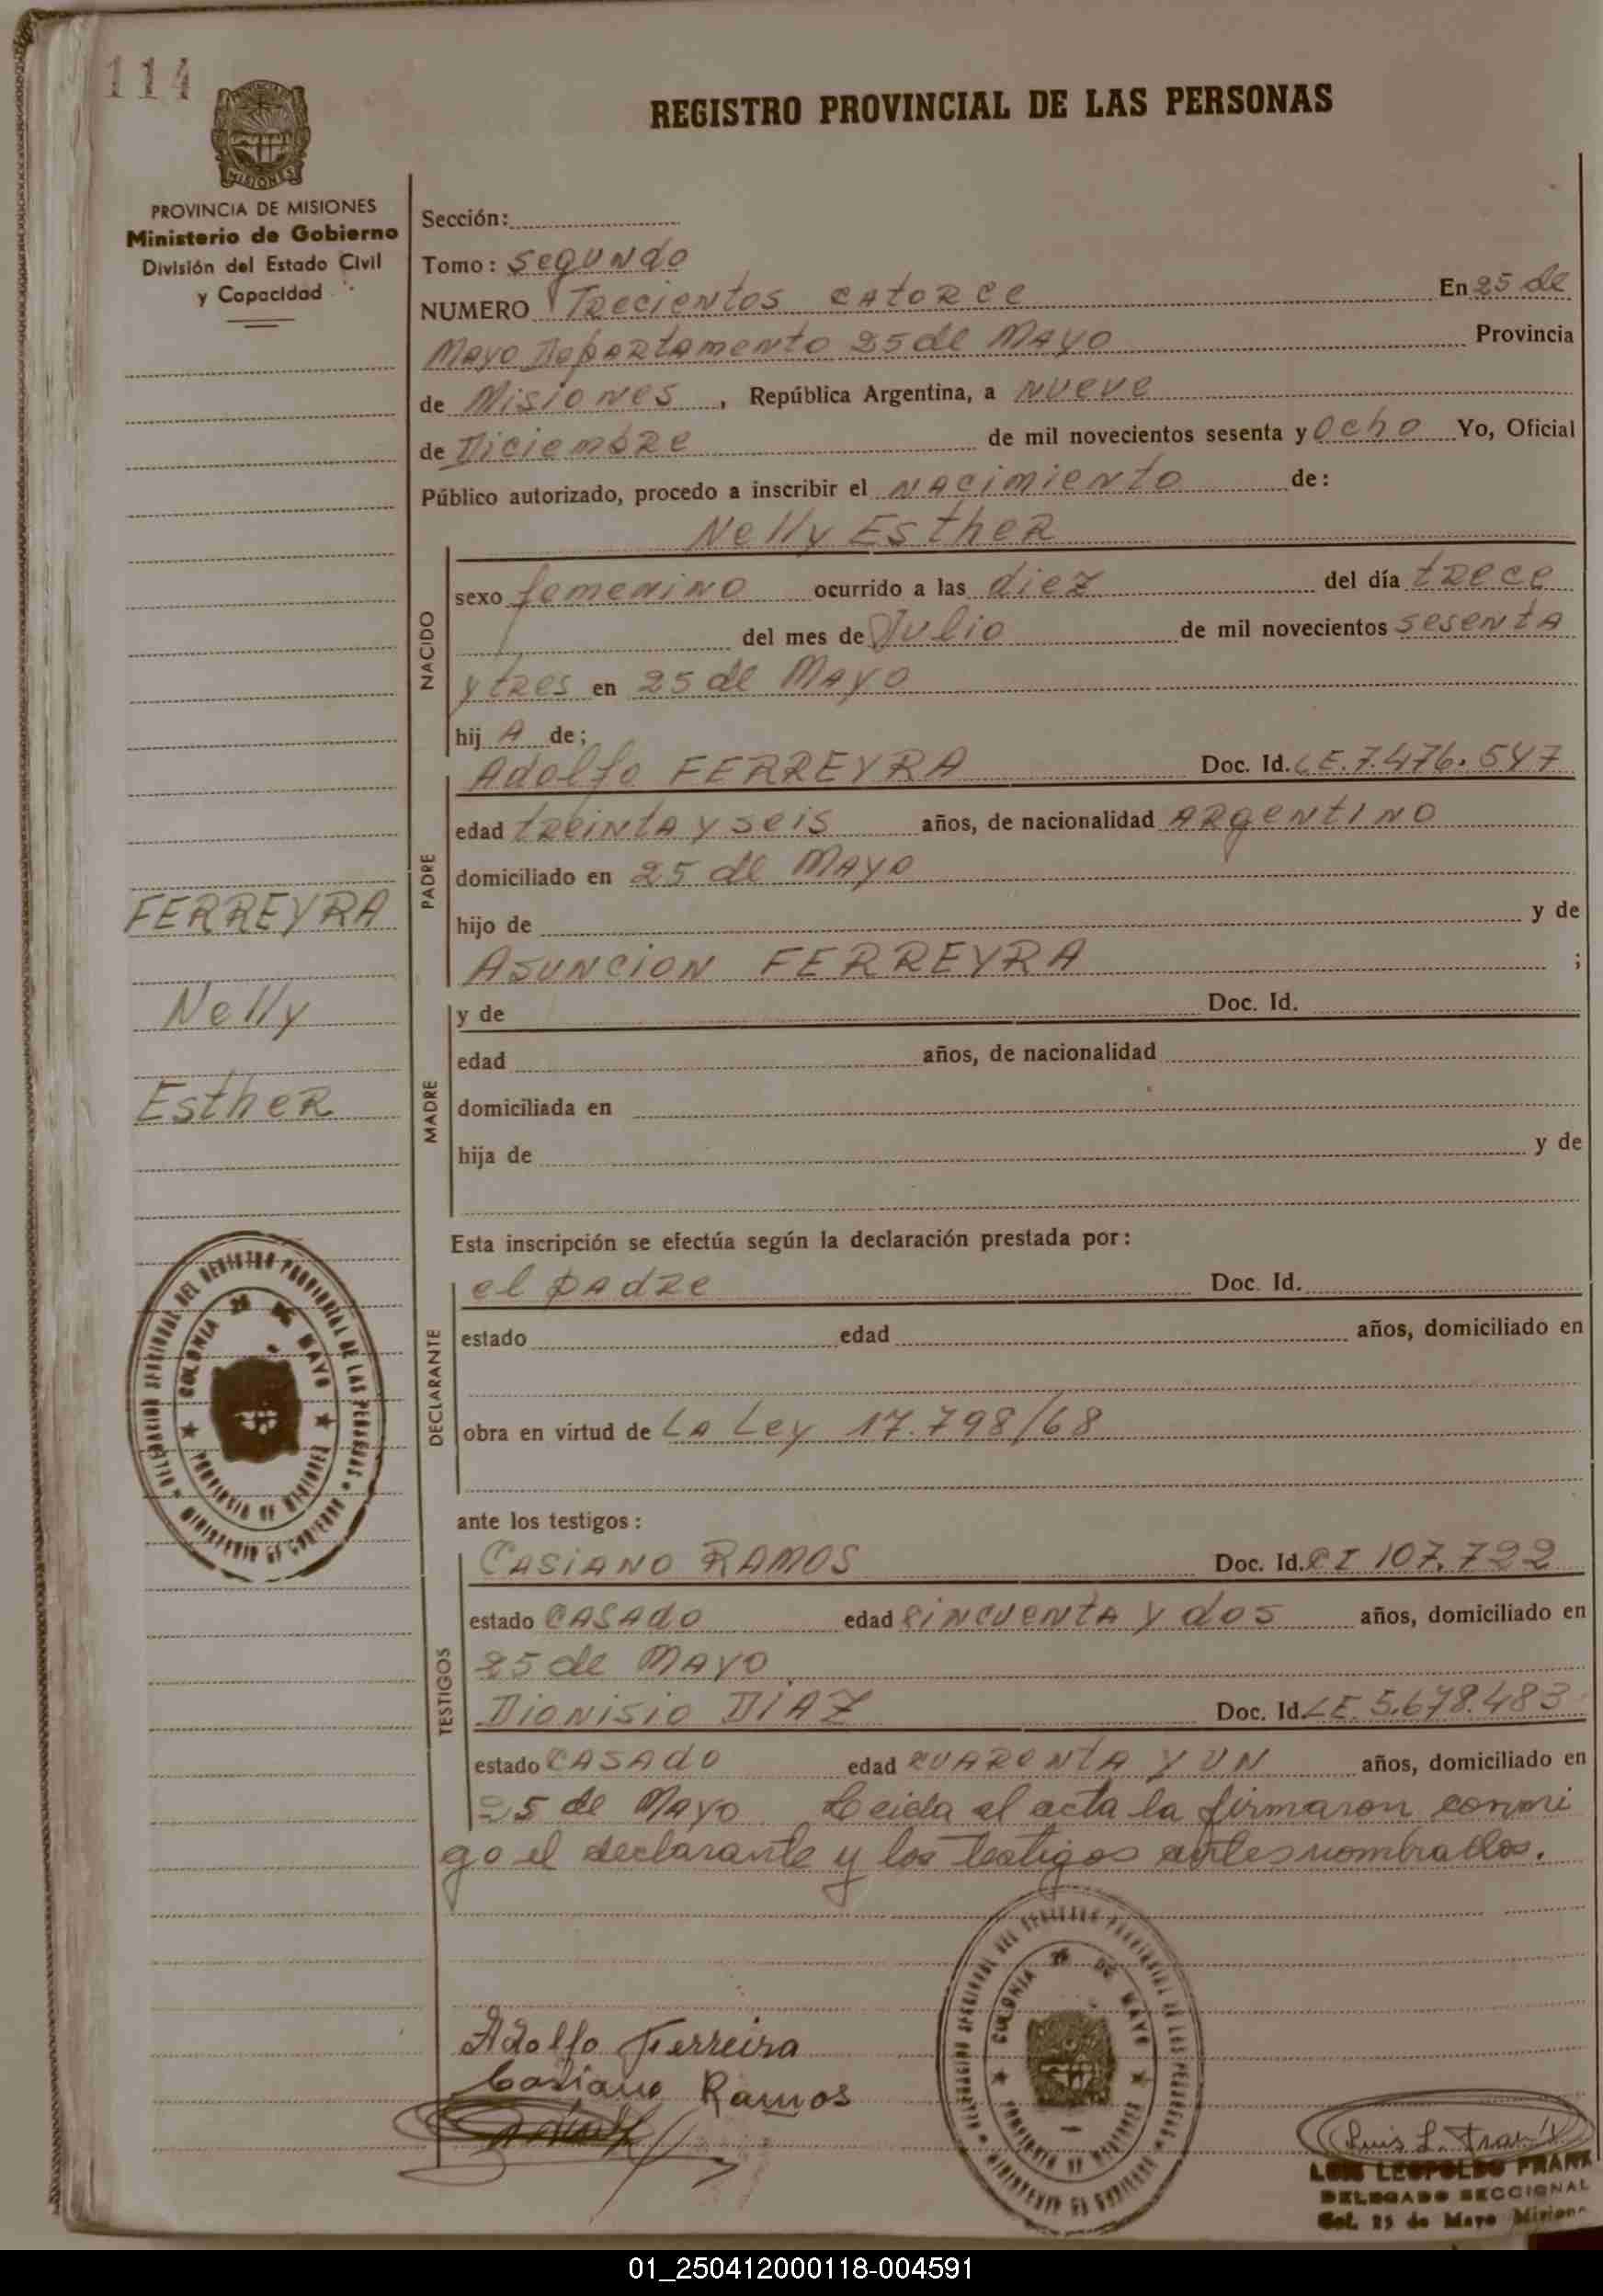 114
REGISTRO PROVINCIAL DE LAS PERSONAS
MISIONES
PROVINCIA DE MISIONES
Ministerio de Gobierno
División del Estado Civil
y Capacidad
Sección:
Tomo: Segundo
NUMERO Trecientos catorce En 25 de
Mayo Departamento 25 de Mayo Provincia
de Misiones, República Argentina, a nueve
de Diciembre de mil novecientos sesenta y Ocho Yo, Oficial
Público autorizado, procedo a inscribir el nacimiento de:
Nelly Esther
NACIDO
sexo femenino ocurrido a las diez del día trece
del mes de Julio de mil novecientos sesenta
y tres en 25 de Mayo
hij A de;
PADRE
Adolfo FERREYRA Doc. Id. LE. 7.476.547
edad treinta y seis años, de nacionalidad Argentino
domiciliado en 25 de Mayo
hijo de y de
Asuncion FERREYRA ;
FERREYRA
Nelly
Esther
MADRE
y de Doc. Id.
edad años, de nacionalidad
domiciliada en
hija de y de
Esta inscripción se efectúa según la declaración prestada por:
DECLARANTE
el padre Doc. Id.
estado edad años, domiciliado en
obra en virtud de La Ley 17.798/68
DELEGACION SECCIONAL DEL REGISTRO PROVINCIAL DE LAS PERSONAS
MINISTERIO DE GOBIERNO
COLONIA 25 DE MAYO
PROVINCIA DE MISIONES
ante los testigos:
TESTIGOS
Casiano RAMOS Doc. Id. CI 107.722
estado CASADO edad sincuenta y dos años, domiciliado en
25 de Mayo
Dionisio DIAZ Doc. Id. LE. 5.678.483
estado CASADO edad cuarenta y un años, domiciliado en
25 de Mayo Leida el acta la firmaron conmi
go el declarante y los testigos antes nombrados.
Adolfo Ferreira
Casiano Ramos
DELEGACION SECCIONAL DEL REGISTRO PROVINCIAL DE LAS PERSONAS
MINISTERIO DE GOBIERNO
COLONIA 25 DE MAYO
PROVINCIA DE MISIONES
Luis L. Frank
LUIS LEOPOLDO FRANK
DELEGADO SECCIONAL
Col. 25 de Mayo Misiones
01_250412000118-004591